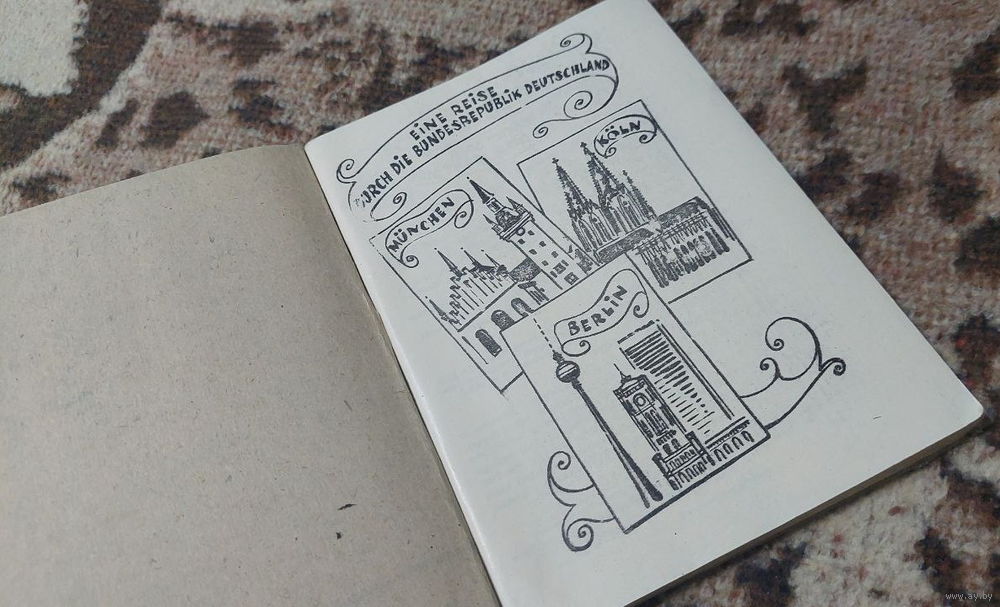 EINE REISE
DURCH DIE BUNDESREPUBLIK DEUTSCHLAND
KÖLN
MÜNCHEN
BERLIN
www.ay.by